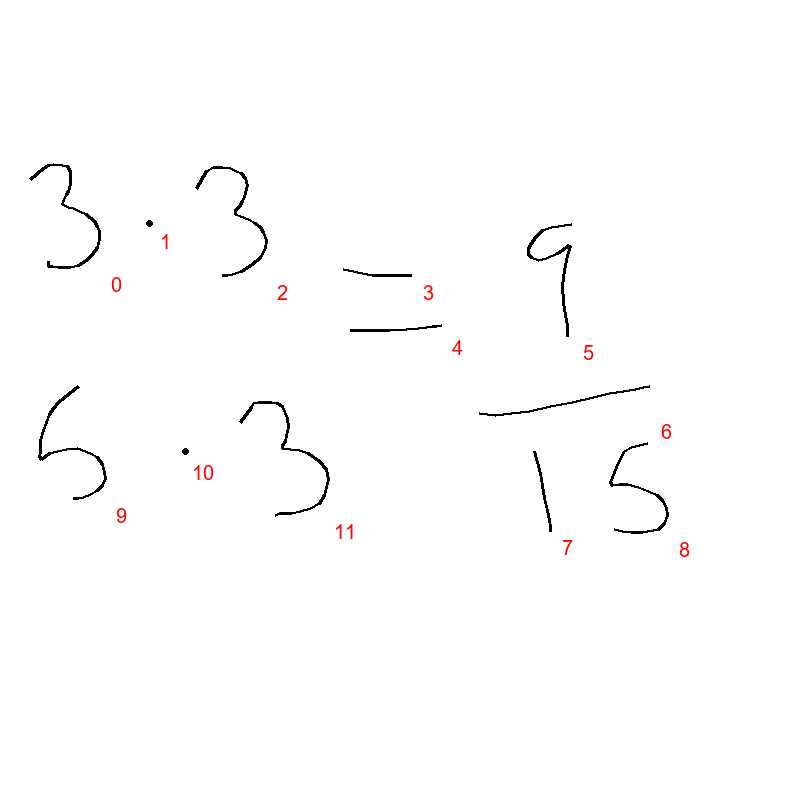 3 · 3 = 9
5 · 3 15
0 1 2 3 4 5 6 7 8 9 10 11